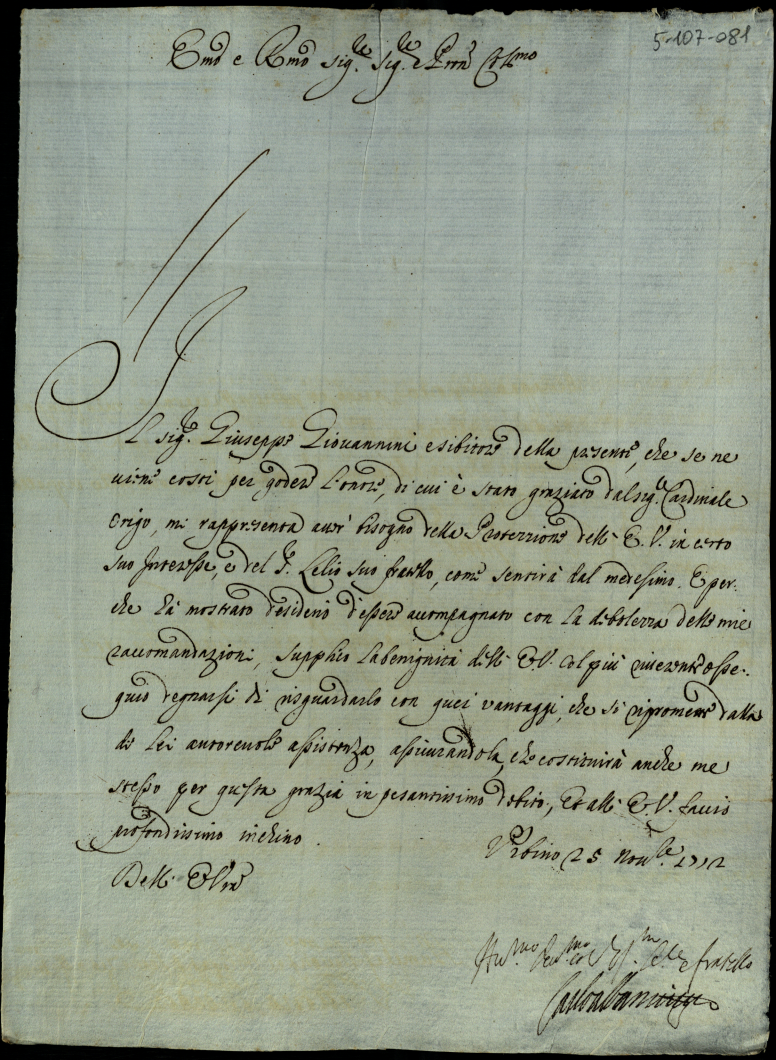 5-107-081
Emo e Rmo Sig.re Sig.re e Pron Col.mo
Il Sig.re Giuseppe Giovannini esibitore della presente, che se ne
viene costì per godere l'onore, di cui è stato graziato dal Sig.r Cardinale
Origo, mi rappresenta aver bisogno della Protezzione dell' E. V. in certo
suo Interesse, e del Lelio suo fratello, come sentirà dal medesimo. E per-
che hà mostrato desiderio d'essere accompagnato con la debolezza delle mie
raccomandazioni, supplico la benignità dell' E. V. col più riverente osse-
quio degnarsi di risguardarlo con quei vantaggi, che si ripromette dalla
di lei autorevole assistenza, assicurandola, che costituirà anche me
stesso per questa grazia in pesantissimo debito, Et all' E. V. faccio
profondissimo inchino.
Urbino 25 Nov.re 1712
Dell' E. V.
Hu.mo e fratello